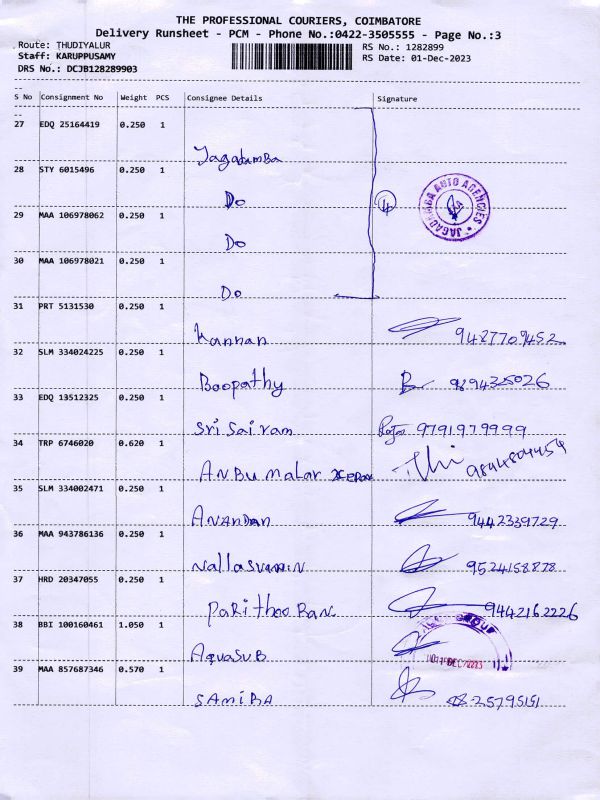 THE PROFESSIONAL COURIERS, COIMBATORE
Delivery Runsheet - PCM - Phone No.:0422-3505555 - Page No.:3
Route: THUDIYALUR RS No.: 1282899
Staff: KARUPPUSAMY RS Date: 01-Dec-2023
DRS No.: DCJB128289903
S No Consignment No Weight PCS Consignee Details Signature
27 EDQ 25164419 0.250 1
Jagadamba
28 STY 6015496 0.250 1
Do 4
JAGADAMBA AUTO AGENCIES
29 MAA 106978062 0.250 1
Do
30 MAA 106978021 0.250 1
Do
31 PRT 5131530 0.250 1
Kannan 9487709452
32 SLM 334024225 0.250 1
Boopathy 9894325026
33 EDQ 13512325 0.250 1
Sri Sai ram 9791979999
34 TRP 6746020 0.620 1
ANBU MaLar 9844804454
35 SLM 334002471 0.250 1
ANANDAN 9442339729
36 MAA 943786136 0.250 1
Nallasvamin 9524158878
37 HRD 20347055 0.250 1
9442162226
38 BBI 100160461 1.050 1
AquaSUB
GROUP
DEC
39 MAA 857687346 0.570 1
SAMIBA 25795151